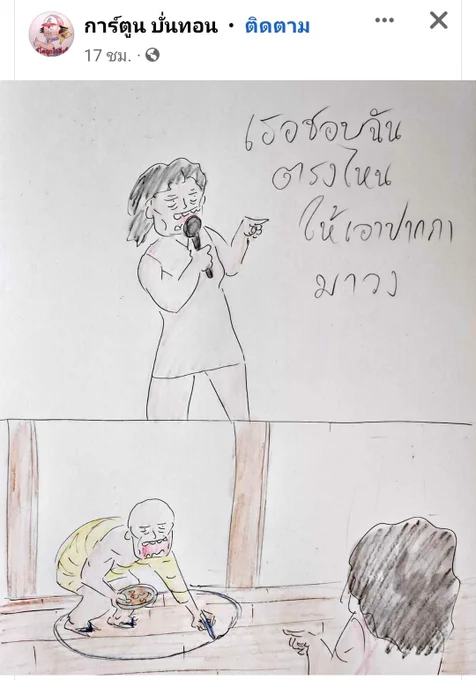 การ์ตูน บั่นทอน · ติดตาม
17 ชม. ·
เธอชอบฉัน
ตรงไหน
ให้เอาปากกา
มาวง